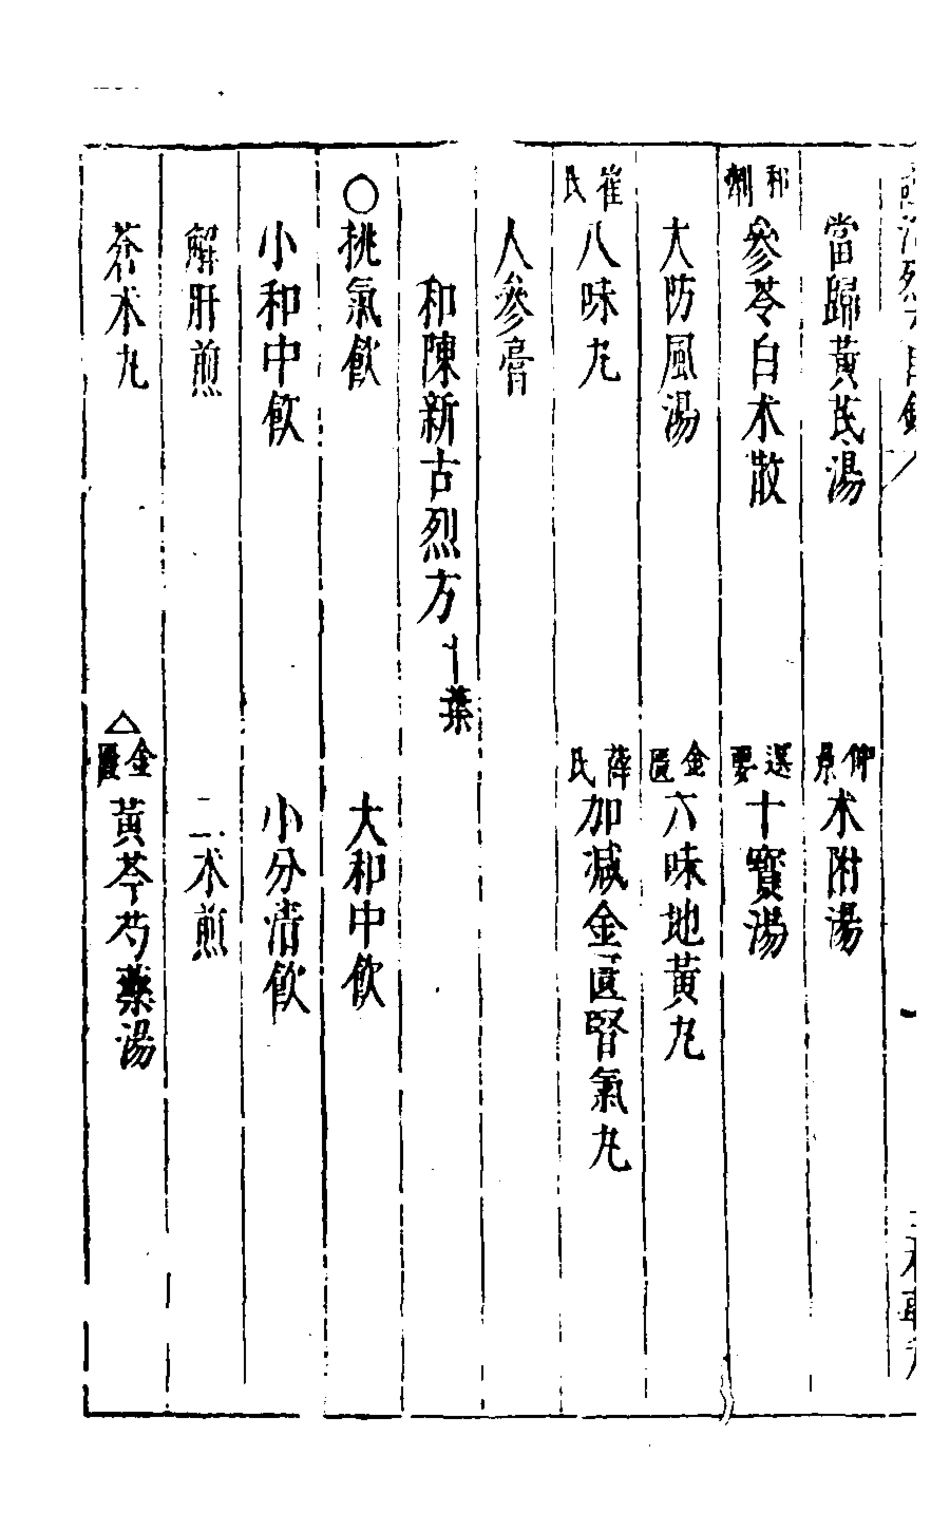 當歸黃芪湯 仲景 术附湯
和劑 參苓白术散 選要 十寶湯
大防風湯 金匱 六味地黃丸
崔氏 八味丸 薛氏 加減金匱腎氣丸
人參膏
和陳新古烈方 十葉
○挑氣飲 大和中飲
小和中飲 小分清飲
解肝煎 二术煎
蒼术丸 △金匱 黃芩芍藥湯